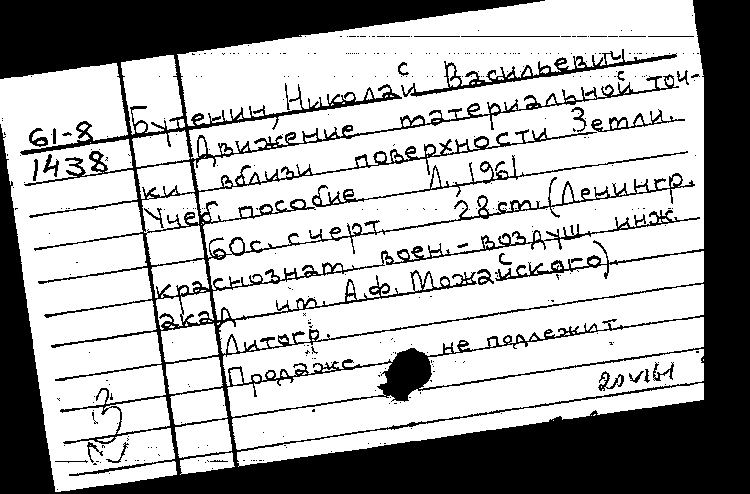 61-8
1438
Бутенин, Николай Васильевич.
Движение материальной точ-
ки вблизи поверхности Земли.
Учеб. пособие Л., 1961.
60с. с черт. 28см. (Ленингр.
краснознам. воен.-воздуш. инж.
акад. им. А.Ф. Можайского).
Литогр.
Продаже не подлежит.